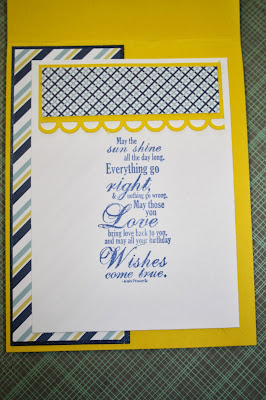 May the
sun shine
all the day long,
Everything go
right,
& nothing go wrong.
May those
you
Love
bring love back to you,
and may all your birthday
Wishes
come true.
-Irish Proverb